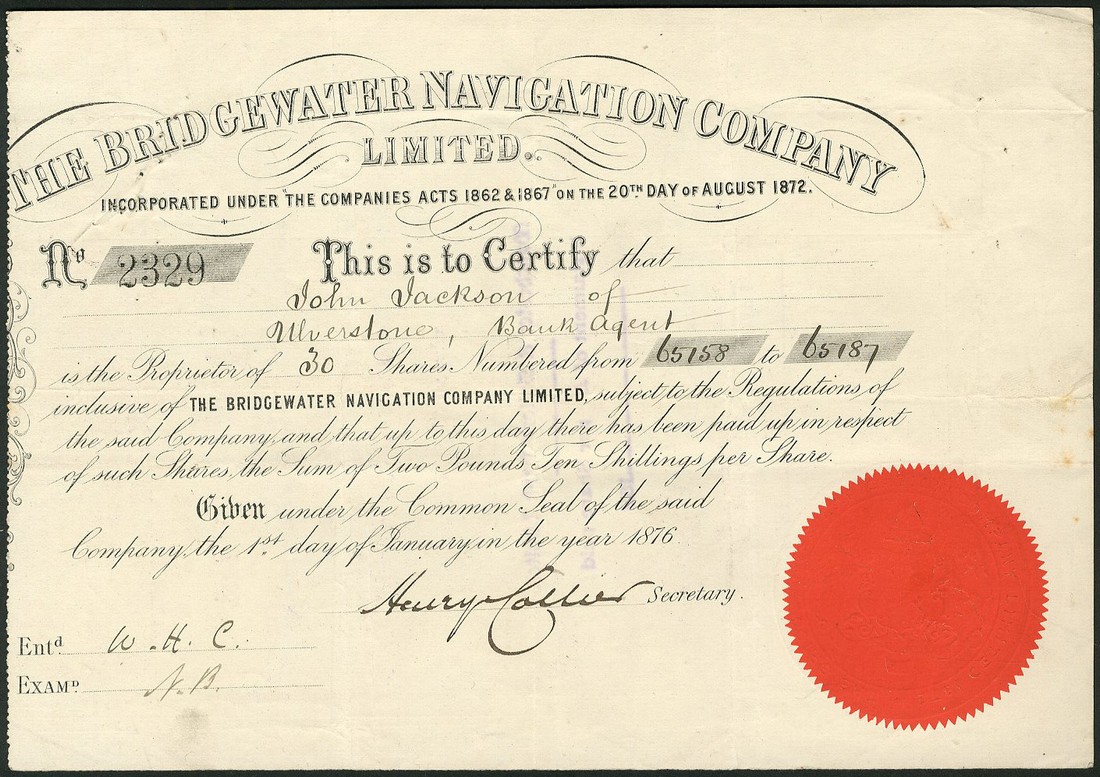 THE BRIDGEWATER NAVIGATION COMPANY
LIMITED.
INCORPORATED UNDER "THE COMPANIES ACTS 1862 & 1867" ON THE 20TH DAY OF AUGUST 1872.
No 2329 This is to Certify that
John Jackson of
Ulverstone, Bank Agent
is the Proprietor of 30 Shares Numbered from 65158 to 65187
inclusive of THE BRIDGEWATER NAVIGATION COMPANY LIMITED, subject to the Regulations of
the said Company, and that up to this day there has been paid up in respect
of such Shares, the Sum of Two Pounds Ten Shillings per Share.
Given under the Common Seal of the said
Company, the 1st day of January, in the year 1876.
Henry Collier Secretary.
Entd W. H. C.
EXAMD N. B.